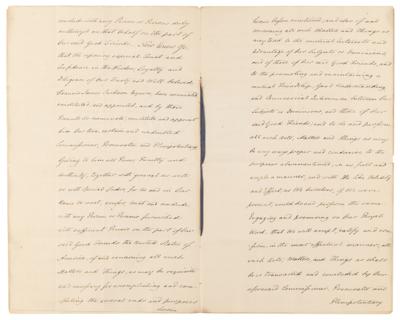 vested with any Person or Persons duly
authorized on that behalf on the part of
her said Good Friends. Now know Ye
that We reposing especial Trust and
Confidence in the Wisdom, Loyalty and
Diligence of Our Trusty and Well beloved
Francis James Jackson Esquire, have nominated
constituted and appointed, and by these
Presents do nominate, constitute and appoint
him Our true, certain and undoubted
Commissioner, Procurator and Plenipotentiary
Giving to him all Power, Faculty and
Authority, together with general as well
as with Special Order, for Us and in Our
Name to meet, confer, treat and conclude
with any Person or Persons furnished
with sufficient Powers on the part of Our
said Good Friends the United States of
America, of and concerning all such
Matters and Things, as may be requisite
and necessary for accomplishing and com
pleting the several ends and purposes
herein
herein before mentioned, and also of and
concerning all such Matters and Things as
may tend to the mutual Interests and
Advantage of Our Subjects or Dominions,
and of those of Our said Good Friends, and
to the promoting and maintaining a
mutual Friendship, Good Understanding
and Commercial Intercourse between Our
Subjects & Dominions, and those of Our
said Good Friends, and to do and perform
all such Acts, Matters and Things as may
be any ways proper and conducive to the
purposes abovementioned, in as full and
ample a manner, and with the like Validity
and Effect, as We Ourselves, if We were
present, could do and perform the same
Engaging and promising on Our Royal
Word, that We will accept, ratify and con
firm, in the most effectual manner, all
such Acts, Matters, and Things as shall
be so transacted and concluded by Our
aforesaid Commissioner, Procurator and
Plenipotentiary